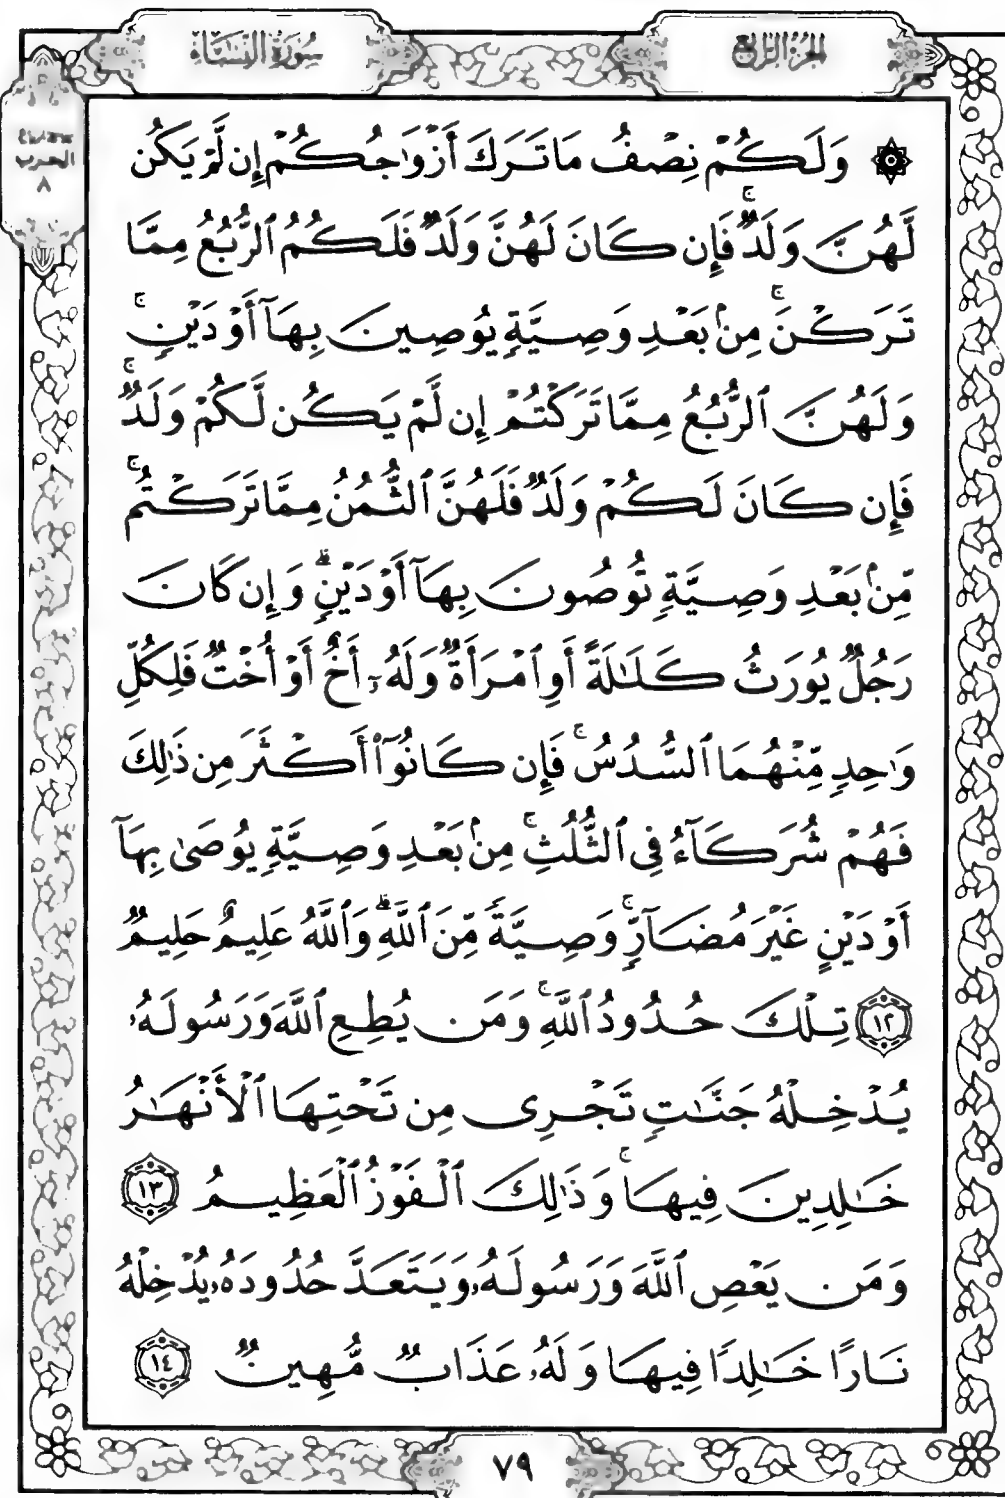 الجزء الرابع
سورة النساء
الحزب
٨
۞ وَلَكُمْ نِصْفُ مَا تَرَكَ أَزْوَٰجُكُمْ إِن لَّمْ يَكُن
لَّهُنَّ وَلَدٌ ۚ فَإِن كَانَ لَهُنَّ وَلَدٌ فَلَكُمُ ٱلرُّبُعُ مِمَّا
تَرَكْنَ ۚ مِنۢ بَعْدِ وَصِيَّةٍ يُوصِينَ بِهَآ أَوْ دَيْنٍ ۚ
وَلَهُنَّ ٱلرُّبُعُ مِمَّا تَرَكْتُمْ إِن لَّمْ يَكُن لَّكُمْ وَلَدٌ ۚ
فَإِن كَانَ لَكُمْ وَلَدٌ فَلَهُنَّ ٱلثُّمُنُ مِمَّا تَرَكْتُم ۚ
مِّنۢ بَعْدِ وَصِيَّةٍ تُوصُونَ بِهَآ أَوْ دَيْنٍ ۗ وَإِن كَانَ
رَجُلٌ يُورَثُ كَلَٰلَةً أَوِ ٱمْرَأَةٌ وَلَهُۥٓ أَخٌ أَوْ أُخْتٌ فَلِكُلِّ
وَٰحِدٍ مِّنْهُمَا ٱلسُّدُسُ ۚ فَإِن كَانُوٓا۟ أَكْثَرَ مِن ذَٰلِكَ
فَهُمْ شُرَكَآءُ فِى ٱلثُّلُثِ ۚ مِنۢ بَعْدِ وَصِيَّةٍ يُوصَىٰ بِهَآ
أَوْ دَيْنٍ غَيْرَ مُضَآرٍّ ۚ وَصِيَّةً مِّنَ ٱللَّهِ ۗ وَٱللَّهُ عَلِيمٌ حَلِيمٌ
١٢ تِلْكَ حُدُودُ ٱللَّهِ ۚ وَمَن يُطِعِ ٱللَّهَ وَرَسُولَهُۥ
يُدْخِلْهُ جَنَّٰتٍ تَجْرِى مِن تَحْتِهَا ٱلْأَنْهَٰرُ
خَٰلِدِينَ فِيهَا ۚ وَذَٰلِكَ ٱلْفَوْزُ ٱلْعَظِيمُ ١٣
وَمَن يَعْصِ ٱللَّهَ وَرَسُولَهُۥ وَيَتَعَدَّ حُدُودَهُۥ يُدْخِلْهُ
نَارًا خَٰلِدًا فِيهَا وَلَهُۥ عَذَابٌ مُّهِينٌ ١٤
٧٩